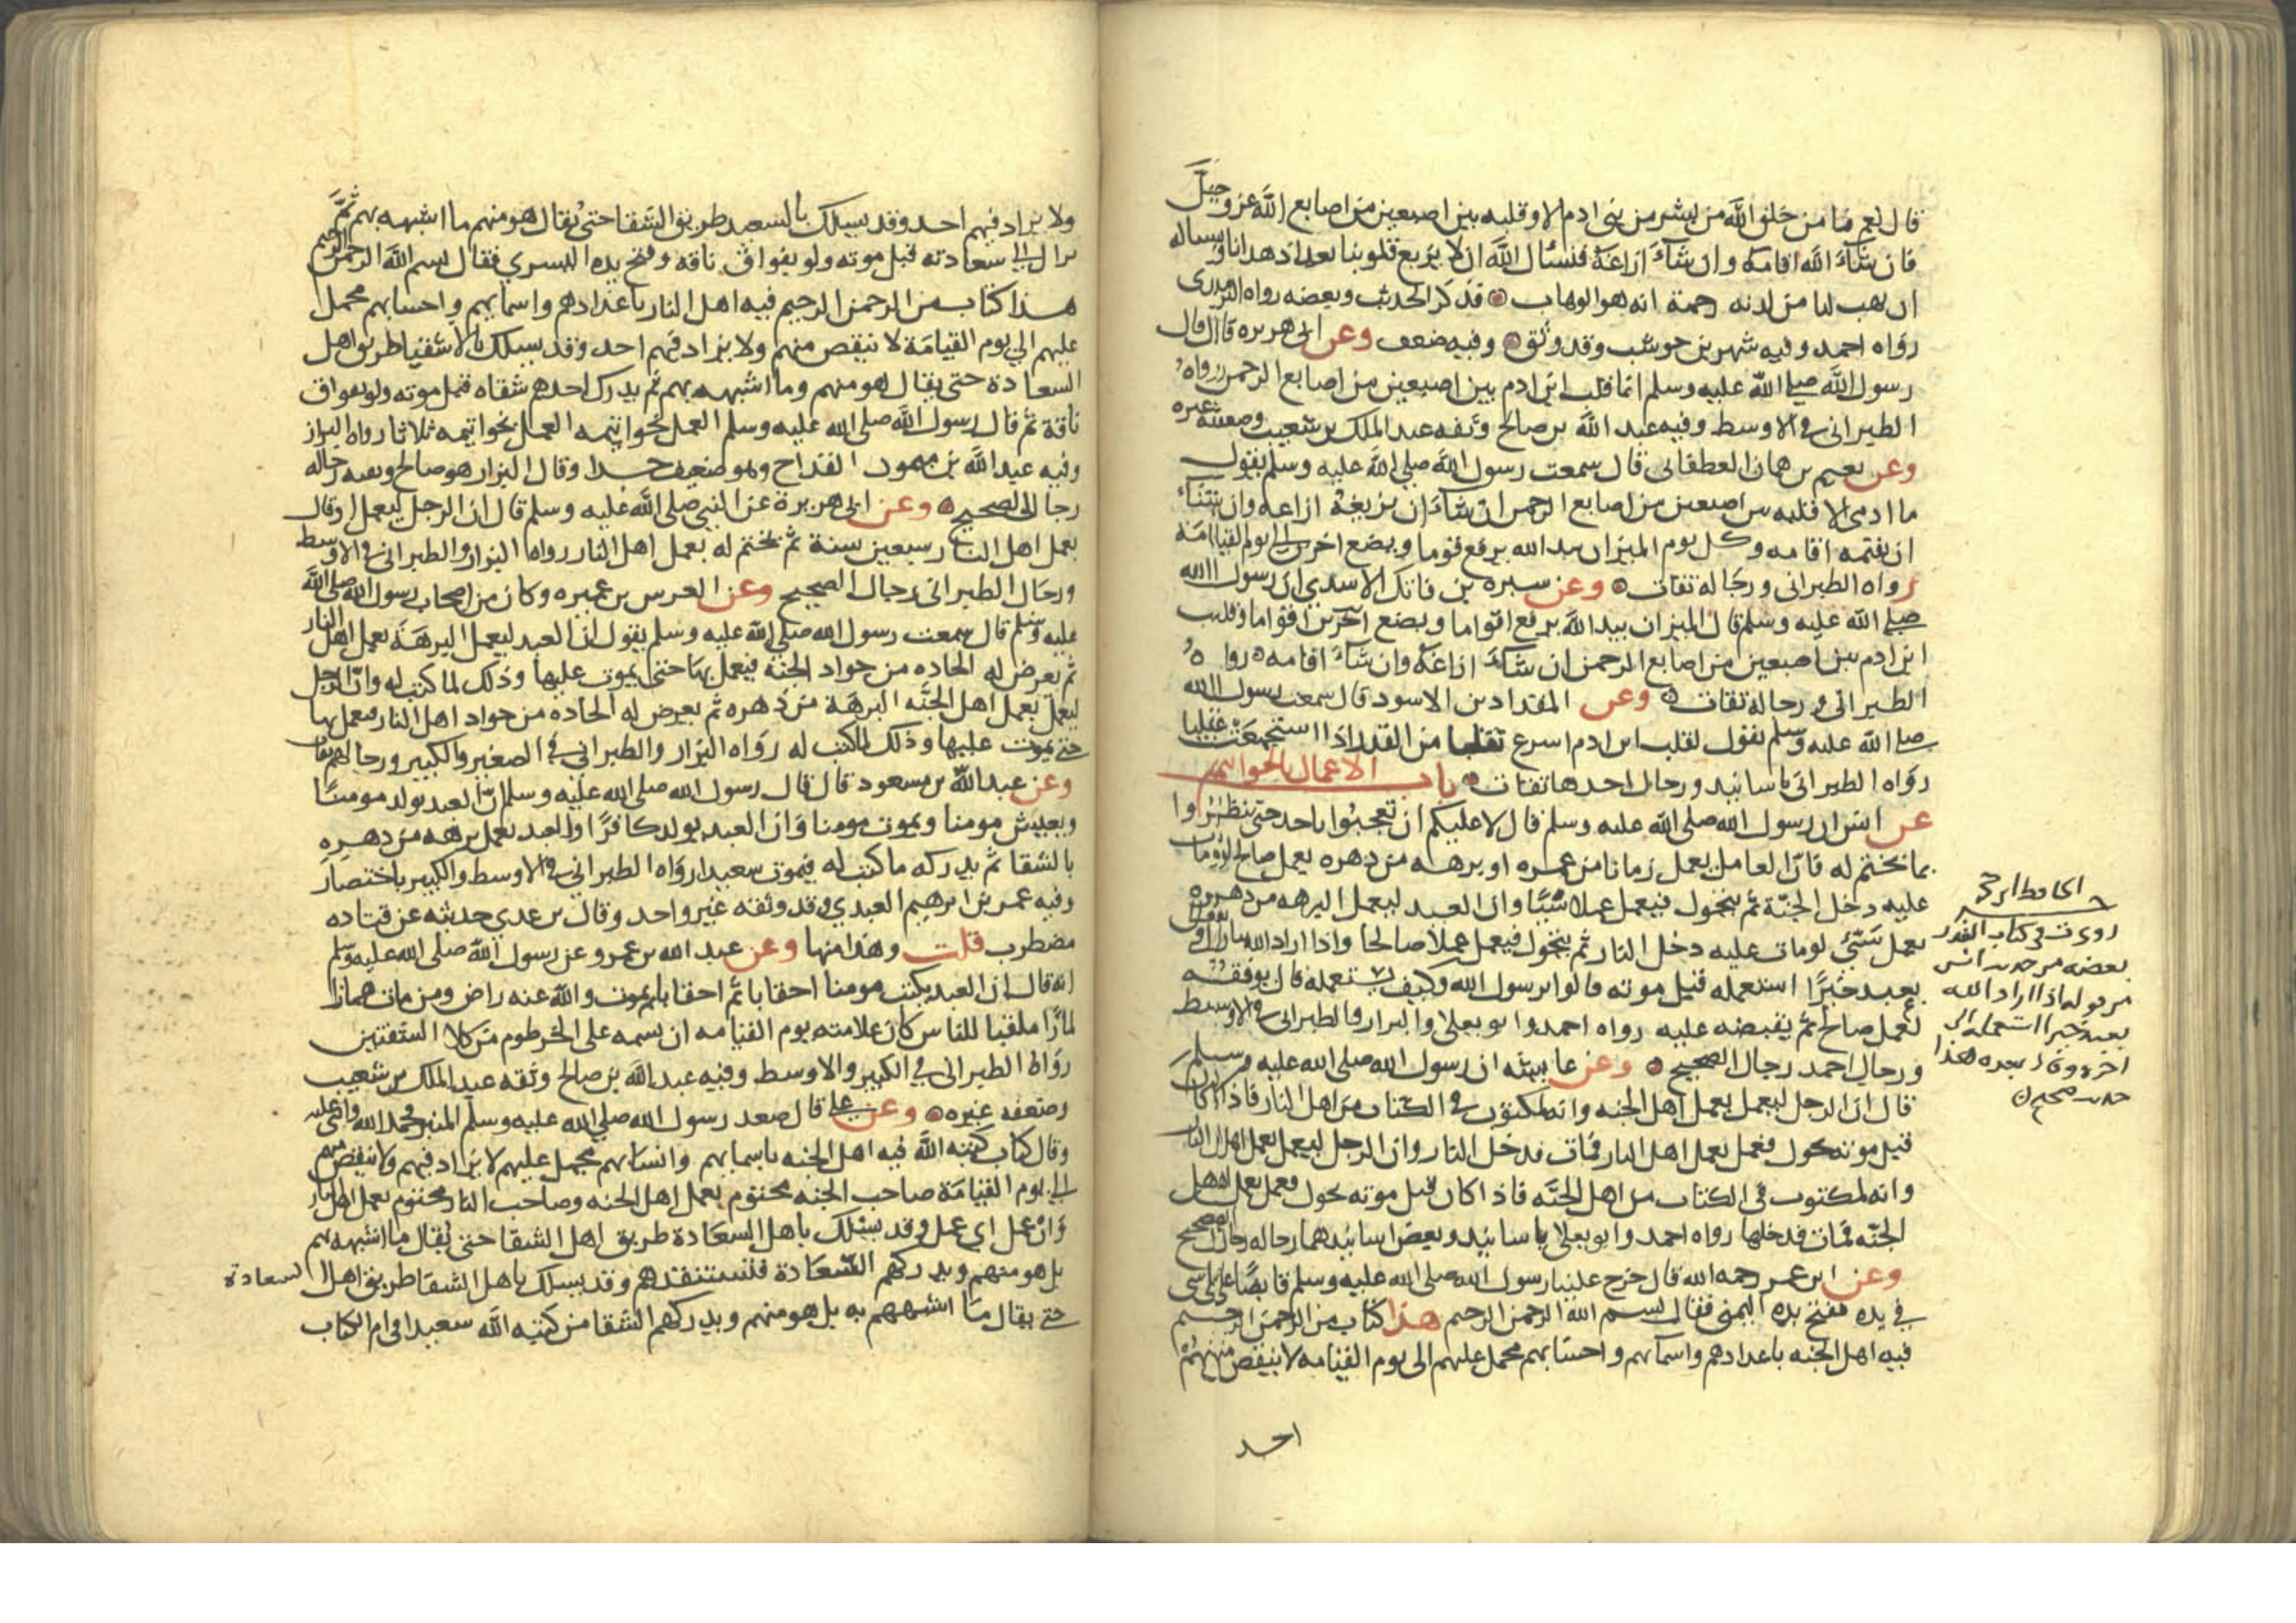 قال نعم ما من خلق الله من بشر من بني ادم الا وقلبه بين اصبعين من اصابع الله عز وجل
فان شاء الله اقامه وان شاء ازاغه فنسأل الله ان لا يزيغ قلوبنا بعد اذ هدانا ونساله
ان يهب لنا من لدنه رحمة انه هو الوهاب قد ذكر الحديث وبعضه رواه الترمذى
رواه احمد وفيه شهر بن حوشب وقد وثق وفيه ضعف وعن ابى هريره قال قال
رسول الله صلى الله عليه وسلم انما قلب ابن ادم بين اصبعين من اصابع الرحمن رواه
الطبرانى فى الاوسط وفيه عبد الله بن صالح وثقه عبد الملك بن شعيب وضعفه غيره
وعن نعيم بن همار الغطفانى قال سمعت رسول الله صلى الله عليه وسلم يقول
ما ادمى الا قلبه بين اصبعين من اصابع الرحمن ان شاء ان يزيغه ازاغه وان شاء
ان يقيمه اقامه وكل يوم الميزان بيد الله يرفع قوما ويضع اخرين الى يوم القيامة
رواه الطبرانى ورجاله ثقات وعن سبره بن فاتك الاسدي ان رسول الله
صلى الله عليه وسلم قال الميزان بيد الله يرفع اقواما ويضع آخرين اقواما وقلب
ابن ادم بين اصبعين من اصابع الرحمن ان شاء ازاغه وان شاء اقامه رواه
الطبرانى ورجاله ثقات وعن المقداد بن الاسود قال سمعت رسول الله
صلى الله عليه وسلم يقول لقلب ابن ادم اسرع تقلبا من القدر اذا استجمعت غليا
رواه الطبرانى باسانيد ورجال احدها ثقات باب الاعمال بالخواتيم
عن انس ان رسول الله صلى الله عليه وسلم قال لا عليكم ان تعجبوا باحد حتى تنظروا
بما يختم له فان العامل يعمل زمانا من عمره او برهه من دهره بعمل صالح لو مات
عليه دخل الجنة ثم يتحول فيعمل عملا سيئا وان العبد ليعمل البرهه من دهره
بعمل سيئ لو مات عليه دخل النار ثم يتحول فيعمل عملا صالحا واذا اراد الله تبارك وتعالى
بعبد خيرا استعمله قبل موته قالوا يا رسول الله وكيف يستعمله قال يوفقه
لعمل صالح ثم يقبضه عليه رواه احمد وابو يعلى والبزار والطبرانى فى الاوسط
ورجال احمد رجال الصحيح وعن عايشه ان رسول الله صلى الله عليه وسلم
قال ان الرجل ليعمل بعمل اهل الجنه وانه لمكتوب فى الكتاب من اهل النار فاذا كان
قبل موته تحول فعمل بعمل اهل النار فمات فدخل النار وان الرجل ليعمل بعمل اهل النار
وانه لمكتوب فى الكتاب من اهل الجنه فاذا كان قبل موته تحول فعمل بعمل اهل
الجنه فمات فدخلها رواه احمد وابو يعلا باسانيد وبعض اسانيدهما رجاله رجال الصحيح
وعن ابن عمر رحمه الله قال خرج علينا رسول الله صلى الله عليه وسلم قابضا على شى
في يده ففتح يده اليمنى فقال بسم الله الرحمن الرحيم هذا كتاب من الرحمن الرحيم
فيه اهل الجنه باعدادهم واسمايهم واحسابهم مجمل عليهم الى يوم القيامه لا ينقص منهم
احد
روى ت فى كتاب القدر
بعضه من حديث انس
من قوله اذا اراد الله
بعبد خيرا استعمله الى
اخره وقال بعده هذا
حديث صحيح
ولا يزاد فيهم احد وقد يسلك بالسعيد طريق الشقا حتى يقال هو منهم ما اشبهه بهم ثم
يزال الى سعادته قبل موته ولو بفواق ناقه وفتح يده اليسري فقال بسم الله الرحمن الرحيم
هذا كتاب من الرحمن الرحيم فيه اهل النار باعدادهم واسمايهم واحسابهم مجمل
عليهم الي يوم القيامة لا ينقص منهم ولا يزاد فيهم احد وقد يسلك بالاشقيا طريق اهل
السعادة حتى يقال هو منهم وما اشبهه بهم ثم يدرك احدهم شقاه قبل موته ولو بفواق
ناقة ثم قال رسول الله صلى الله عليه وسلم العمل بخواتيمه العمل بخواتيمه ثلاثا رواه البزاز
وفيه عبد الله بن ميمون القداح وهو ضعيف جدا وقال البزار هو صالح وبقيه رجاله
رجال الصحيح وعن ابى هريرة عن النبي صلى الله عليه وسلم قال ان الرجل ليعمل او قال
يعمل اهل النار سبعين سنة ثم يختم له بعمل اهل النار رواه البزار والطبرانى فى الاوسط
ورجال الطبرانى رجال الصحيح وعن العرس بن عميره وكان من اصحاب رسول الله صلى الله
عليه وسلم قال سمعت رسول الله صلى الله عليه وسلم يقول ان العبد ليعمل البرهة بعمل اهل النار
ثم يعرض له الجاده من جواد الجنة فيعمل بها حتى يموت عليها وذلك لما كتب له وان الرجل
ليعمل بعمل اهل الجنه البرهة من دهره ثم يعرض له الجاده من جواد اهل النار فيعمل بها
حتى يموت عليها وذلك لما كتب له رواه البزار والطبرانى فى الصغير والكبير ورجالهم ثقات
وعن عبد الله بن مسعود قال قال رسول الله صلى الله عليه وسلم ان العبد يولد مومنا
ويعيش مومنا ويموت مومنا وان العبد يولد كافرا والعبد يعمل برهه من دهره
بالشقا ثم يدركه ما كتب له فيموت سعيدا رواه الطبرانى فى الاوسط والكبير باختصار
وفيه عمر بن ابرهيم العبدي وقد وثقه غير واحد وقال بن عدي حديثه عن قتاده
مضطرب قلت وهذا منها وعن عبد الله بن عمرو عن رسول الله صلى الله عليه وسلم
انه قال ان العبد يكتب مومنا احقابا ثم احقابا ثم يموت والله عنه راض ومن مات همازا
لمازا ملقبا للناس كان علامته يوم القيامه ان يسمه على الخرطوم من كلا الشفتين
رواه الطبرانى في الكبير والاوسط وفيه عبد الله بن صالح وثقه عبد الملك بن شعيب
وضعفه غيره وعن على قال صعد رسول الله صلى الله عليه وسلم المنبر فحمد الله واثنى عليه
وقال كتاب كتبه الله فيه اهل الجنه باسمايهم وانسابهم مجمل عليهم لا يزاد فيهم ولا ينقص منهم
الى يوم القيامة صاحب الجنه مختوم بعمل اهل الجنه وصاحب النار مختوم بعمل اهل النار
وان عمل اي عمل وقد يسلك باهل السعادة طريق اهل الشقا حتى يقال ما اشبهه بهم
بل هو منهم ويدركهم السعادة فتستنقذهم وقد يسلك باهل الشقا طريق اهل السعادة
حتى يقال ما اشبههم به بل هو منهم ويدركهم الشقا من كتبه الله سعيدا فى ام الكتاب